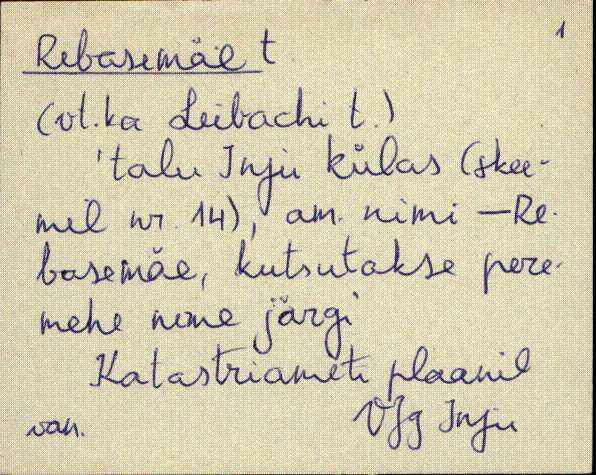 1
Rebasemäe t.
(vt.ka Leibachi t.)
'talu Inju külas (skee-
mil nr. 14), am. nimi — Re-
basemäe, kutsutakse pere-
mehe nime järgi'
Katastriameti plaanil
van. VJg Inju